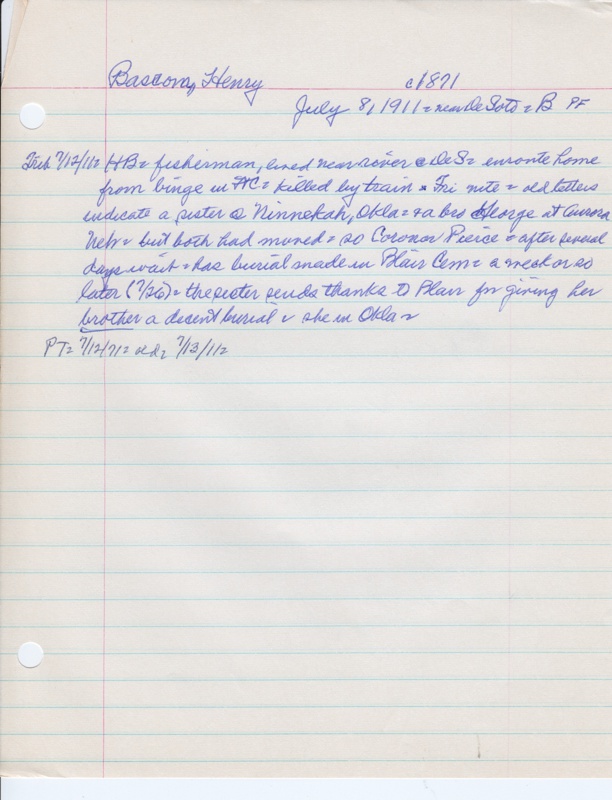 Bascom, Henry c1871
July 8, 1911 = near DeSoto = B PF
Trib 7/12/11 = HB = fisherman, lived near river @ DeS = enroute home
from binge in FtC = killed by train = Fri nite = old letters
indicate a sister @ Ninnekah, Okla = & a bro George at Aurora
Neb = but both had moved = so Coroner Pierce = after several
days wait = has burial made in Blair Cem = a week or so
later (7/26) = the sister sends thanks to Blair for giving her
brother a decent burial = she in Okla =
PT = 7/12/71 = 7/13/11 =